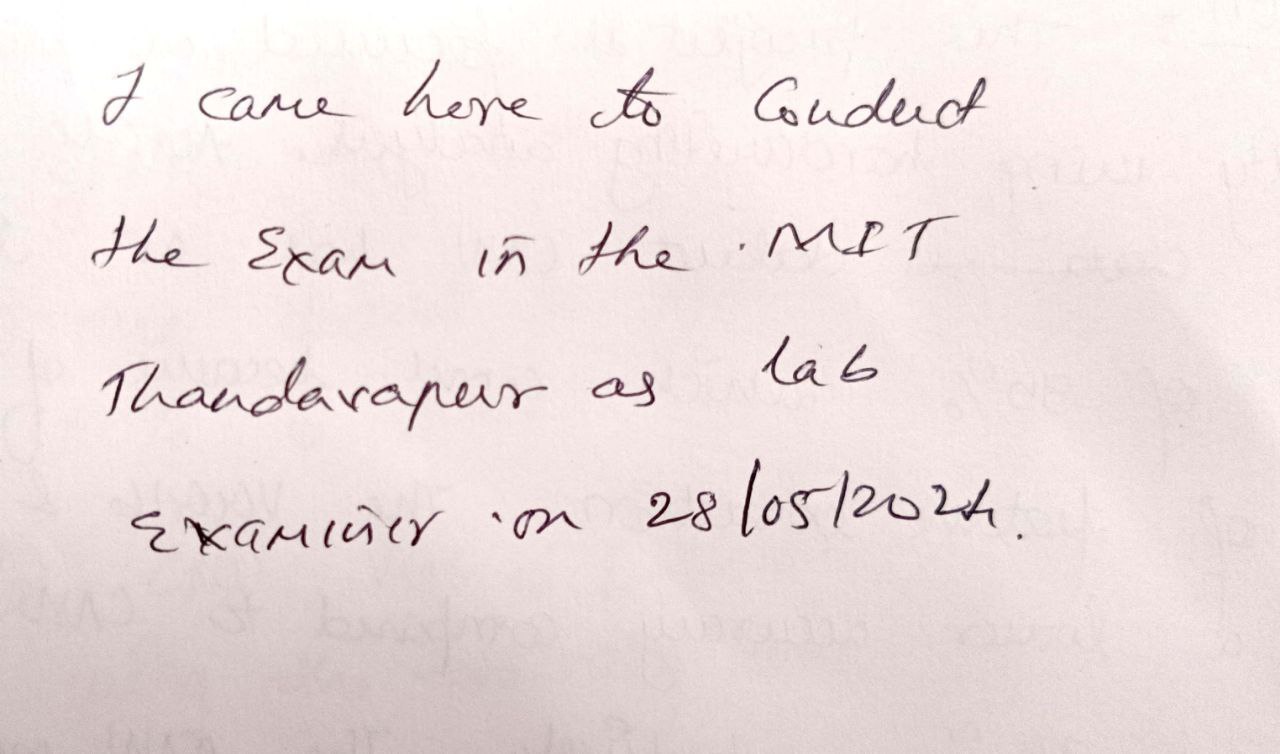 I came here to Conduct
the Exam in the MIT
Thandavapur as lab
Examiner on 28/05/2024.